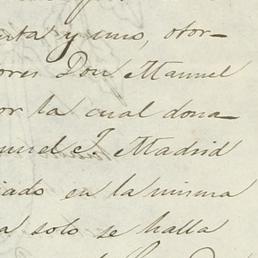 nta y uno, otor-
ores Don Manuel
or la cual dona-
nuel J. Madrid
iado en la misma
a solo se halla